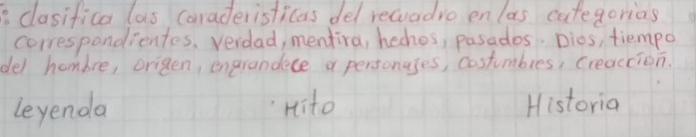 : clasifica las caracteristicas del recuadro en las categorias
correspondientes. verdad, mentira, hechos, pasados. Dios, tiempo
del hombre, origen, engrandece a personajes, costumbres, creaccion.
leyenda Mito Historia